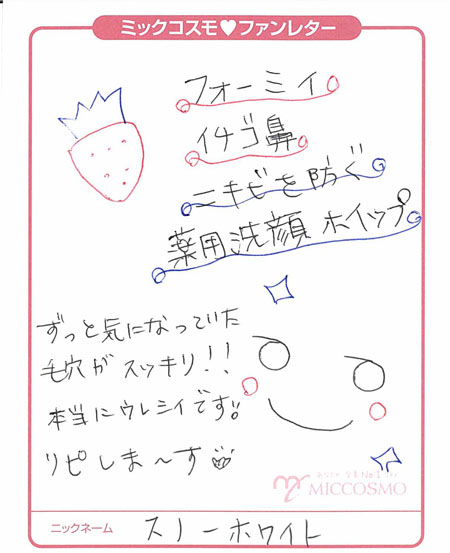 ミックコスモ♥ファンレター
フォーミィ
イチゴ鼻
ニキビを防ぐ
薬用洗顔ホイップ
ずっと気になっていた
毛穴がスッキリ!!
本当にウレシイです。
リピしま〜す
MICCOSMO
ニックネーム スノーホワイト